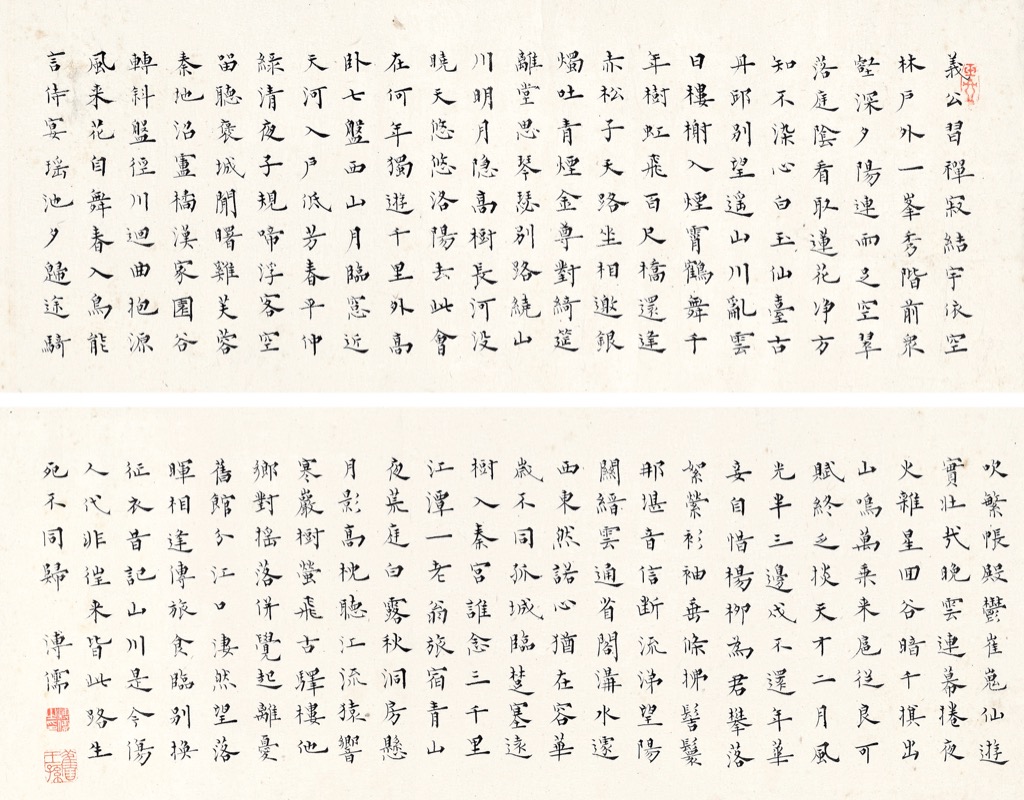 義公習禪寂結宇依空
林戶外一峯秀階前衆
壑深夕陽連雨足空翠
落庭陰看取蓮花净方
知不染心白玉仙臺古
丹邱別望遥山川亂雲
日樓榭入煙霄鶴舞千
年樹虹飛百尺橋還逢
赤松子天路坐相邀銀
燭吐青煙金尊對綺筵
離堂思琴瑟別路繞山
川明月隐高樹長河没
曉天悠悠洛陽去此會
在何年獨遊千里外高
卧七盤西山月臨窓近
天河入戶低芳春平仲
緑清夜子規啼浮客空
留聽褒城聞曙雞芙蓉
秦地沼盧橘漢家園谷
轉斜盤徑川迴曲抱源
風来花自舞春入鳥能
言侍宴瑶池夕歸途騎
吹繁帳殿鬱崔嵬仙遊
實壮哉晚雲連幕捲夜
火雜星回谷暗千旗出
山鳴萬乘来扈從良可
賦終乏掞天才二月風
光半三邊戍不還年華
妾自惜楊柳為君攀落
絮縈衫袖垂條拂髻鬟
那堪音信断流涕望陽
關縉雲通省閣溝水遽
西東然諾心猶在容華
歲不同孤城臨楚塞遠
樹入秦宮誰念三千里
江潭一老翁旅宿青山
夜荒庭白露秋洞房懸
月影高枕聽江流猿響
寒巖樹螢飛古驛樓他
鄉對摇落併覺起離憂
舊館分江口凄然望落
暉相逢傳旅食臨別換
征衣昔記山川是今傷
人代非往来皆此路生
死不同歸 溥儒